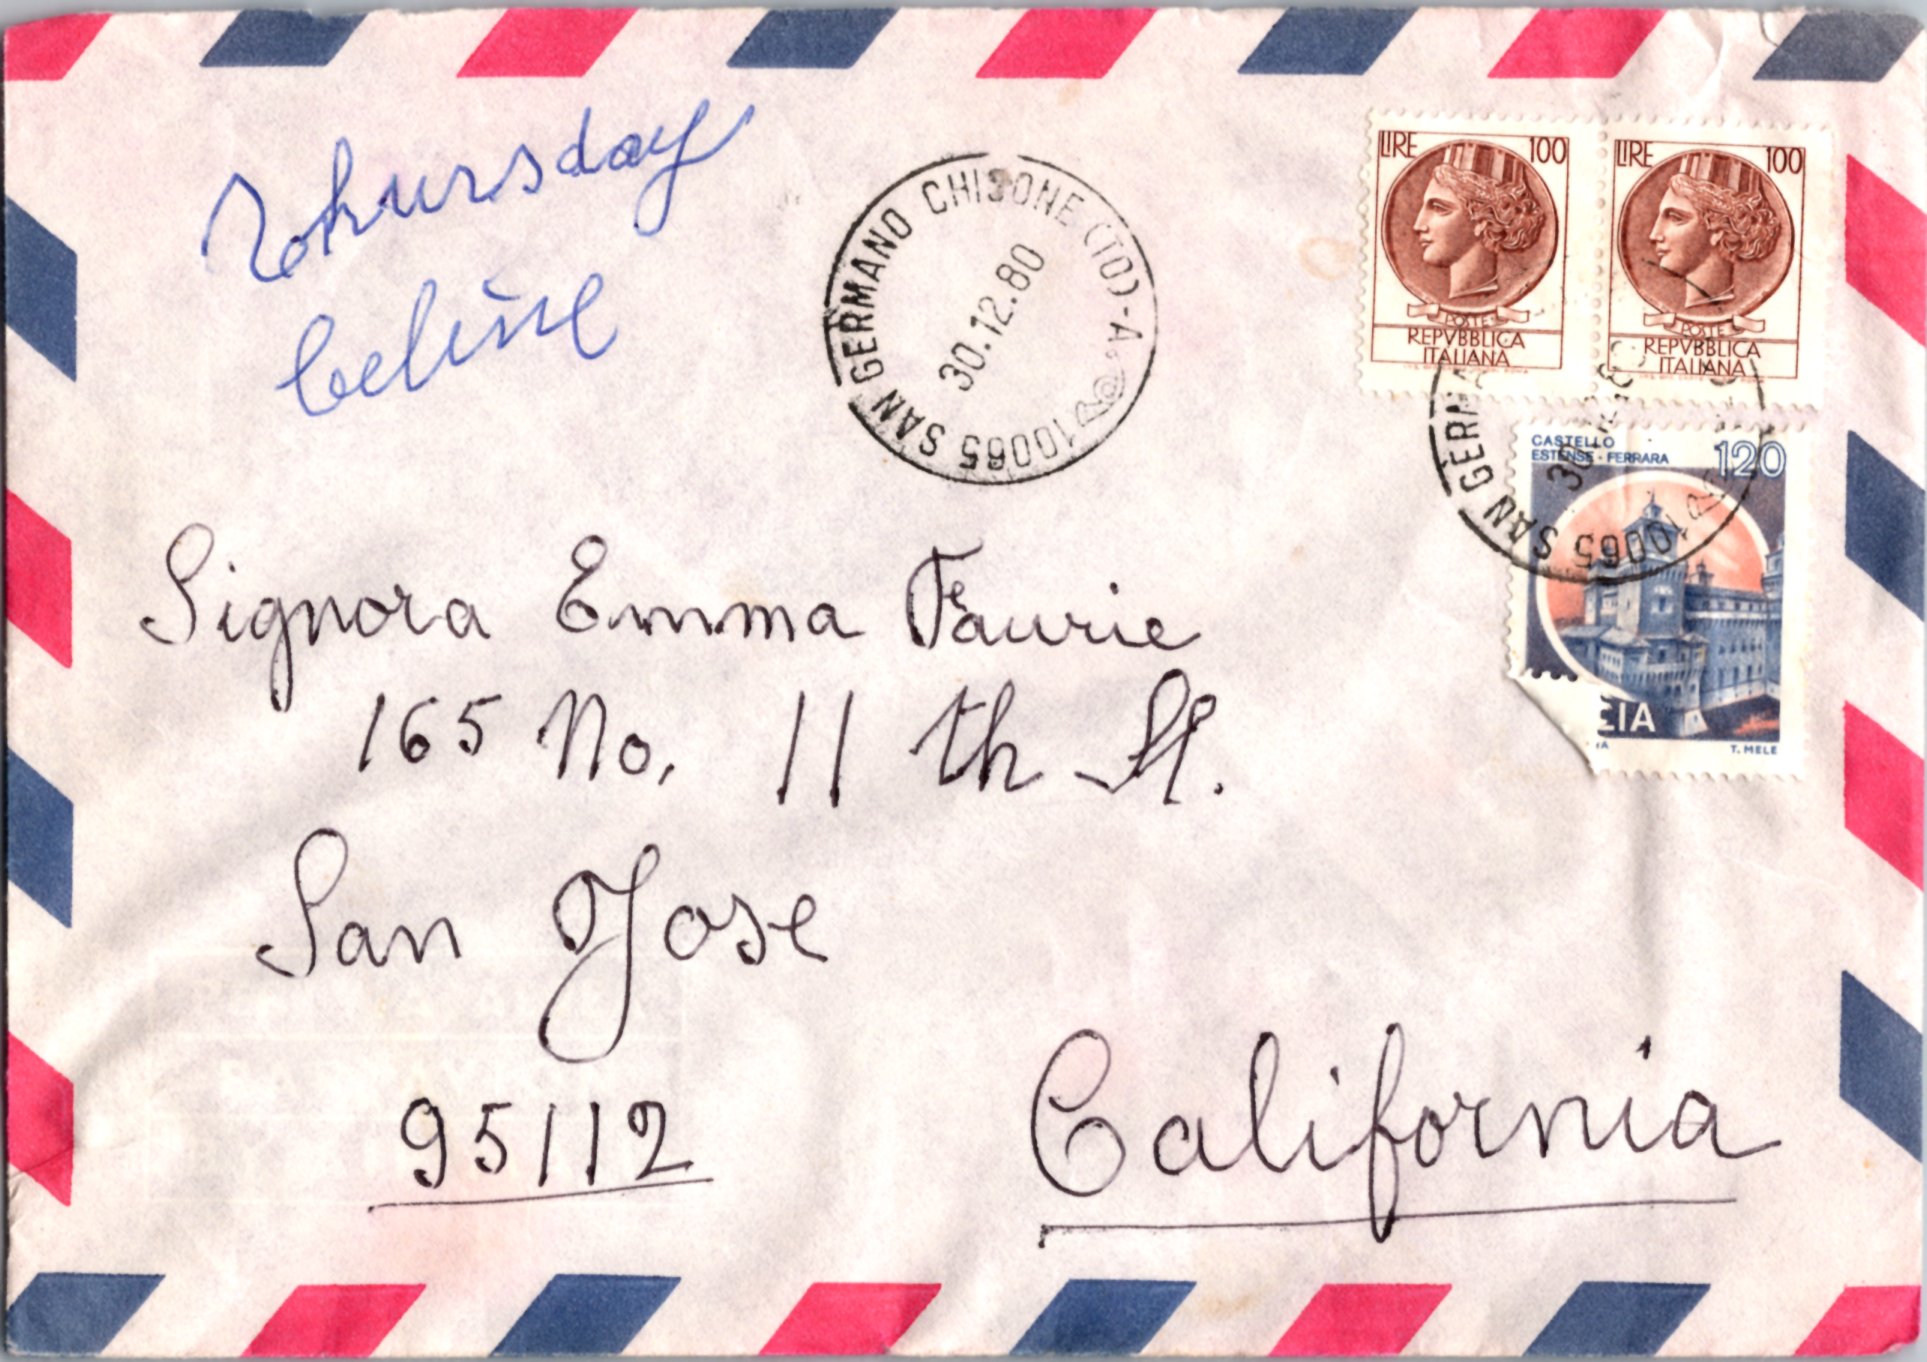 Thursday
Celine
SAN GERMANO CHISONE (TO) - A.
30.12.80
10065
LIRE 100
POSTE
REPVBBLICA
ITALIANA
LIRE 100
POSTE
REPVBBLICA
ITALIANA
SAN GERM
10065
CASTELLO
ESTENSE - FERRARA
120
LIA
T. MELE
Signora Emma Faurie
165 No. 11 th St.
San Jose
95112
California